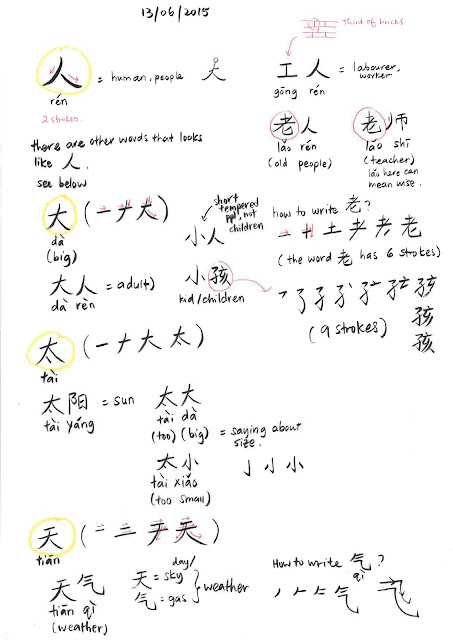 13/06/2015
人 = human, people
rén
2 strokes.
Think of bricks
工人 = labourer, worker
gōng rén
there are other words that looks
like 人.
see below
老人
lǎo rén
(old people)
老师
lǎo shī
(teacher)
lǎo here can
mean wise.
大 (一 ナ 大)
dà
(big)
大人 = adult)
dà rèn
short
tempered
ppl, not
children
小人
小孩
kid/children
how to write 老?
一 十 土 耂 老
(the word 老 has 6 strokes)
孩
孩
孩
(9 strokes)
太 (一 ナ 大 太)
tài
太阳 = sun
tài yáng
太大
tài dà
(too) (big) = saying about
size.
太小
tài xiǎo
(too small)
亅 小 小
天 (一 二 チ 天)
tiān
天气
tiān qì
(weather)
day/
天 = sky
气 = gas
weather
How to write 气?
qì
丿 𠂉 气 气